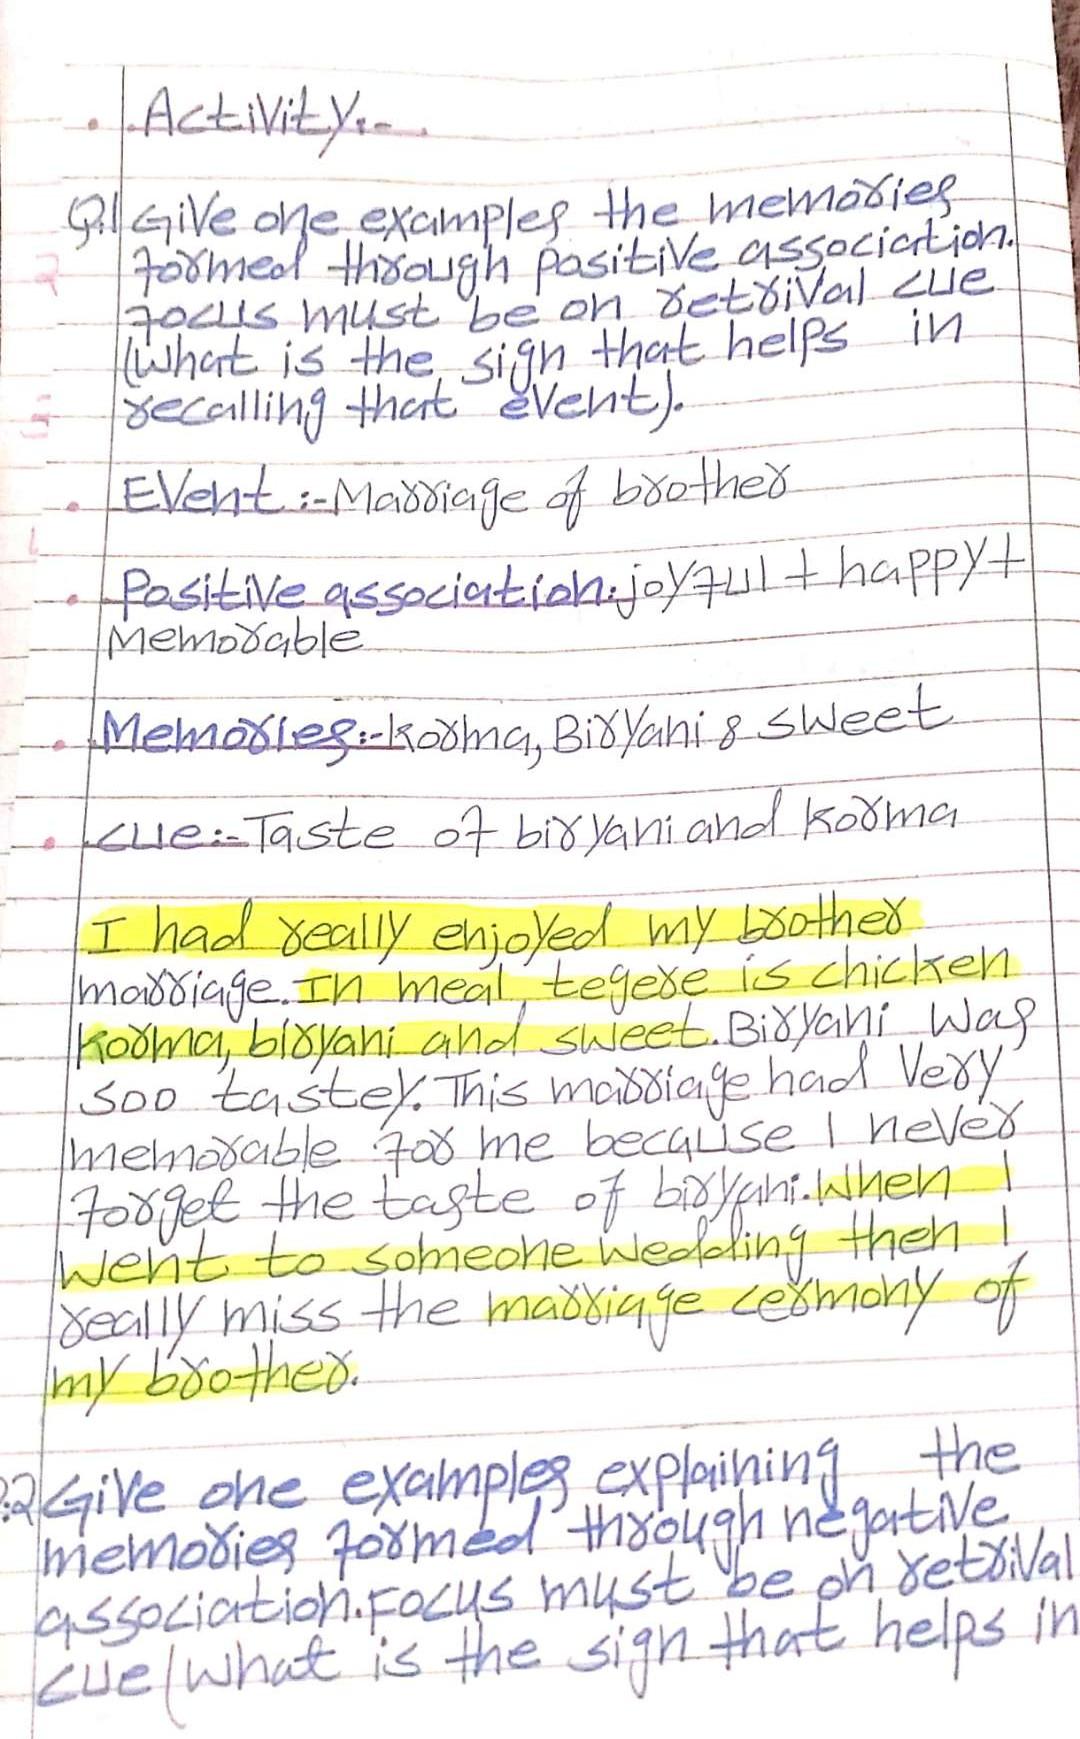 Activity:-
Q.1 Give one examples the memories
formed through positive association.
focus must be on retrival cue
(what is the sign that helps in
recalling that event).
Event:- Marriage of brother
Positive association: joyful + happy +
Memorable
Memories:- korma, Biryani & sweet
cue:- Taste of biryani and korma
I had really enjoyed my brother
marriage. In meal, tegere is chicken
korma, biryani and sweet. Biryani was
soo tastey. This marriage had very
memorable for me because I never
forget the taste of biryani. When I
went to someone wedding then I
really miss the marriage cermony of
my brother.
Q.2 Give one examples explaining the
memories formed through negative
association. Focus must be on retrival
cue (what is the sign that helps in